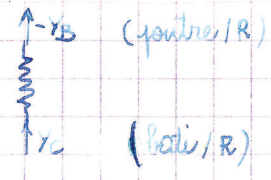 -Y_B (poutre/R)
Y_C (bâti/R)